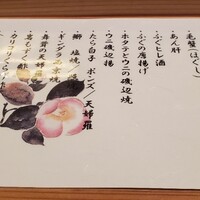 ・毛蟹(ほぐし)
・あん肝
・ふぐヒレ酒
・ふぐの唐揚げ
・ホタテとウニの磯辺焼
・ウニ磯辺揚
・たら白子 ポンズ/天婦羅
・鰤 塩焼
・ギンダラ西京焼
・舞茸の天婦羅
・黒もずく酢